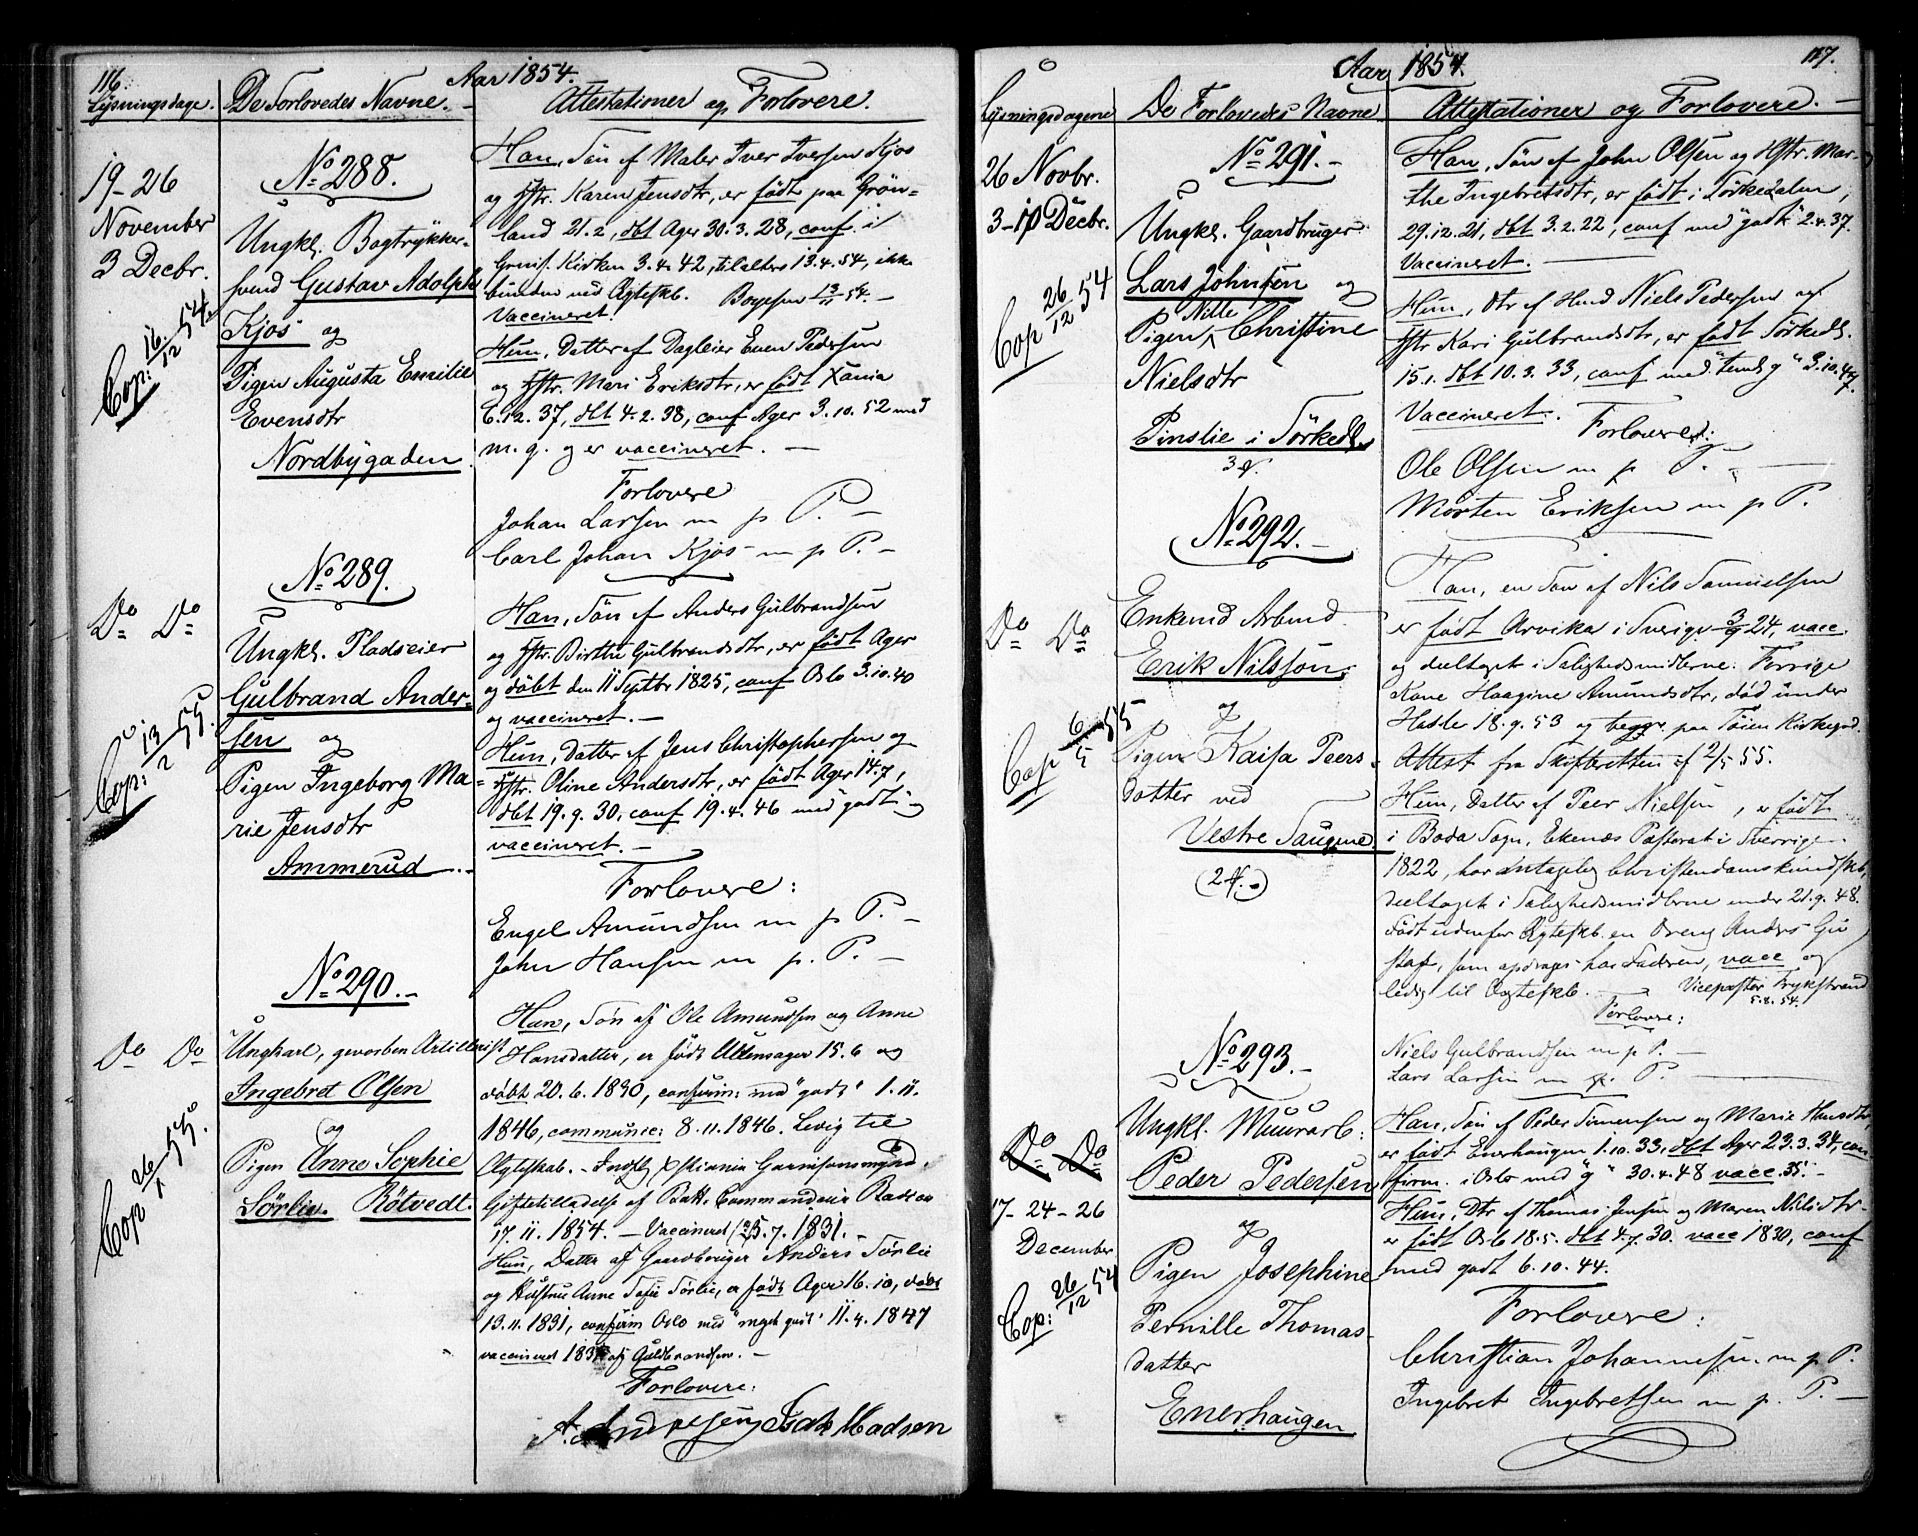 116.
Aar 1854.
Lysningsdage. De Forlovedes Navne. Attestationer og Forlovere.
19-26
November
3 Decbr.
Cop: 16/12 54.
No 288.
Ungkl. Bogtrykker-
svend Gustav Adolph
Kjos og
Pigen Augusta Emilie
Evensdtr
Nordbygaden
Han, Sön af Maler Iver Iversen Kjos
og Hstr. Karen Jensdtr, er födt paa Grön-
land 21.2, dbt Ager 30.3.28, conf i
Garnis. Kirken 3.4.42, tilalters 13.4.54, ikke
bunden ved Ægteskb. Boyesen 13/11 54. -
Vaccineret.
Hun, Datter af Dagleier Even Pedersen
og Hstr. Mari Eriksdtr, er födt Xania
6.12.37, dbt 4.2.38, conf Ager 3.10.52 med
m.g. og er vaccineret. -
Forlovere
Johan Larsen m p P. -
Carl Johan Kjos - m p P. -
Do Do
Cop: 13/2 55.
No 289.
Ungkl. Pladseier
Gulbrand Ander-
sen og
Pigen Ingeborg Ma-
rie Jensdtr
Ammerud
Han, Sön af Anders Gulbrandsen
og Hstr. Birthe Gulbrandsdtr, er födt Ager
og döbt den 11 Septbr 1825, conf Oslo 3.10.40
og vaccineret. -
Hun, Datter af Jens Christophersen og
Hstr. Oline Andersdtr, er födt Ager 14.7,
dbt 19.9.30, conf 19.4.46 med "godt" og
vaccineret. -
Forlovere:
Engel Amundsen m p P. -
John Hansen m p. P. -
Do Do
Cop 26/1 55.
No 290. -
Ungkarl, gevorben Artillerist
Ingebret Olsen
og
Pigen Anne Sophie
Sörlie. Rötvedt.
Han, Sön af Ole Amundsen og Anne
Hansdatter, er födt Akersager 15.6 og
döbt 20.6.1830, confirm: med "godt" 1.11.
1846, communic: 8.11.1846. Ledig til
Ægteskab. - Indflg Xstiania Garnisonsmynd.
Giftetilladelse af Batt. Commandeur
17.11.1854. - Vaccineret 25.7.1831. -
Hun, Datter af Gaardbruger Anders Sörlie
og Hustru Anne Sofie Sörlie, er födt Ager 16.10, döbt
13.11.1831, confirm Oslo med "meget godt" 11.4.1847
vaccineret 183 af Guldbrandsen. -
Forlovere:
A. Andresen Isak Madsen
117.
Aar 1854.
Lysningsdagene De Forlovedes Navne Attestationer og Forlovere. -
26 Novbr.
3-10 Decbr.
Cop 26/12 54
No 291. -
Ungkl. Gaardbruger
Lars Johnsen og
Nille
Pigen Christine
Nielsdtr
Pinslie i Sörkedl.
Han, Sön af John Olsen og Hstr. Mar-
the Ingebretsdtr, er födt i Sörkedalen,
29.12.21, dbt 3.2.22, conf med "godt" 2.4.37.
Vaccineret.
Hun, Dtr af Husmd Niels Pedersen og
Hstr Kari Gulbrandsdtr, er födt Sörkedl.
15.1. dbt 10.3.33, conf med "temlg" 3.10.47.
Vaccineret.
Forlovere:
Ole Olsen m p P.
Morten Eriksen m p P.
Do Do
Cop 6/5 55
No 292. -
Enkemd Arbmd.
Erik Nilsson
og
Pigen Kaisa Peers-
datter ved
Vestre Saugene
Han, en Sön af Nils Samuelsen
er födt Arvika i Sverige 3/9 24, vacc.
og deeltaget i Salighedsmidlerne. Forrige
Kone Haagine Amundsdtr, död under
Hasle 18.9.53 og begr. paa Töien Kirkegrd.
Attest fra Skifteretten af 2/5 55.
Hun, Datter af Peer Nielsen, er födt
i Boda Sogn, Ekenæs Pastorat i Sverrige
1822, har antagelig Christendomskundskb,
deeltaget i Salighedsmidlerne under 21.9.48.
Födt udenfor Ægteskb. en Dreng Anders Gu
staf, som opdrages hos Faderen, vacc og
ledig til Ægteskb. Vicepastor Frykstrand
5.8.54.
Forlovere:
Niels Gulbrandsen m p P. -
Lars Larsen m p. P.
Do Do
17-24-26
December
Cop: 26/12 54
No 293. -
Ungkl. Muurarb:
Peder Pedersen
og
Pigen Josephine
Pernille Thomas-
datter
Enerhaugen
Han, Sön af Peder Simensen og Marie Hansdtr,
er födt Enerhaugen 1.10.33, dbt Ager 23.3.34, con-
firm. i Oslo med "g" 30.4.48 vacc. 35. -
Hun, Dtr af Thomas Jensen og Maren Nilsdtr
er födt Oslo 18.5. dbt 4.7.30. vacc 1830, conf
med godt 6.10.44.
Forlovere:
Christian Johannesen m p P.
Ingebret Ingebretsen m p. P. -